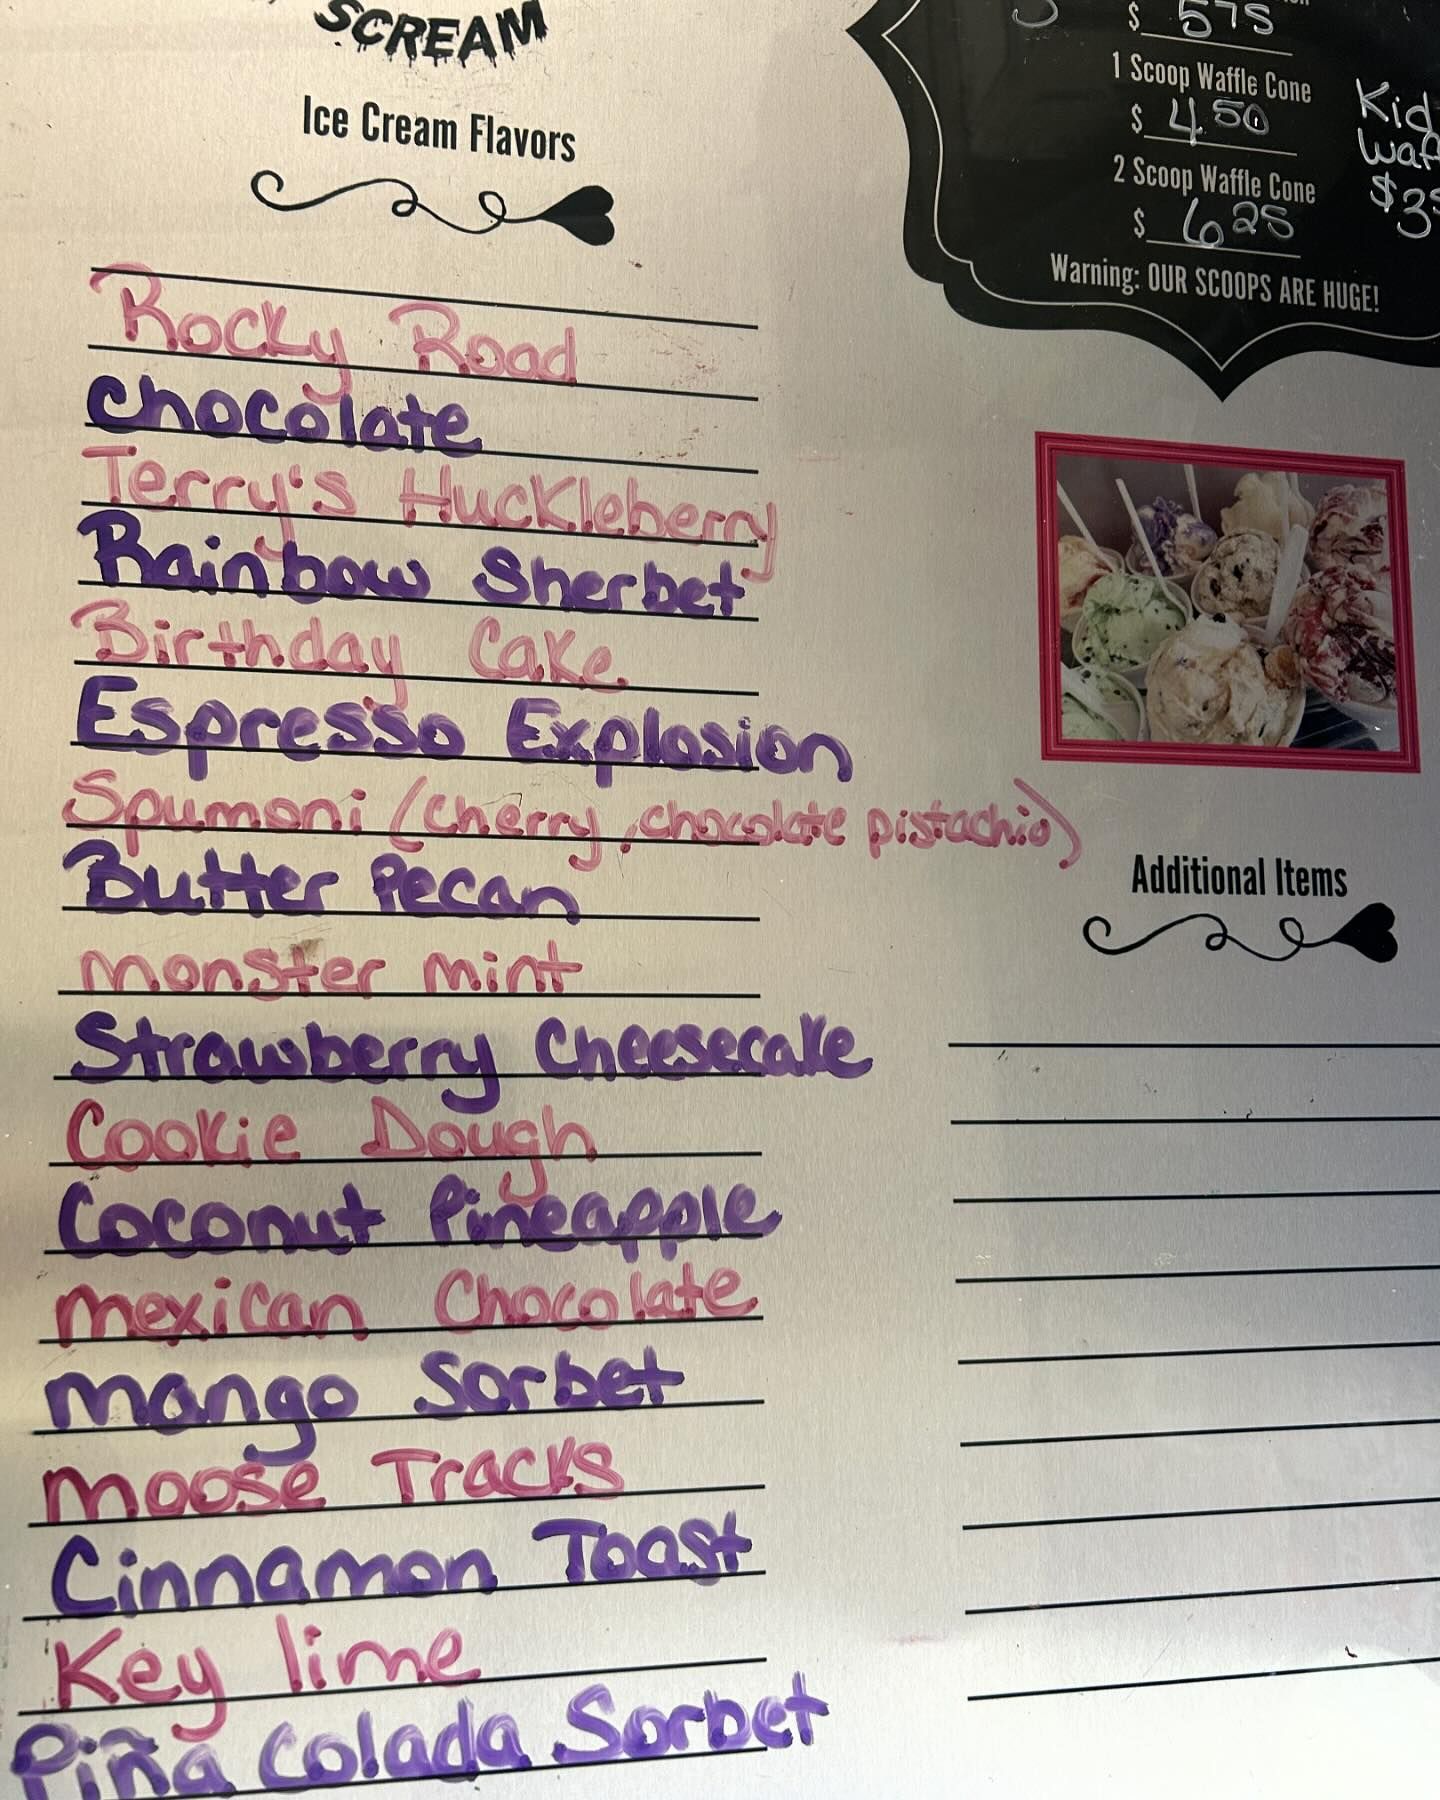 SCREAM
Ice Cream Flavors
Rocky Road
Chocolate
Terry's Huckleberry
Rainbow Sherbet
Birthday Cake
Espresso Explosion
Spumoni (cherry, chocolate pistachio)
Butter Pecan
monster mint
Strawberry Cheesecake
Cookie Dough
Coconut Pineapple
mexican Chocolate
mango Sorbet
moose Tracks
Cinnamon Toast
Key lime
Piña Colada Sorbet
$ 575
1 Scoop Waffle Cone
$ 4.50
2 Scoop Waffle Cone
$ 625
Warning: OUR SCOOPS ARE HUGE!
Kid
$3
Additional Items